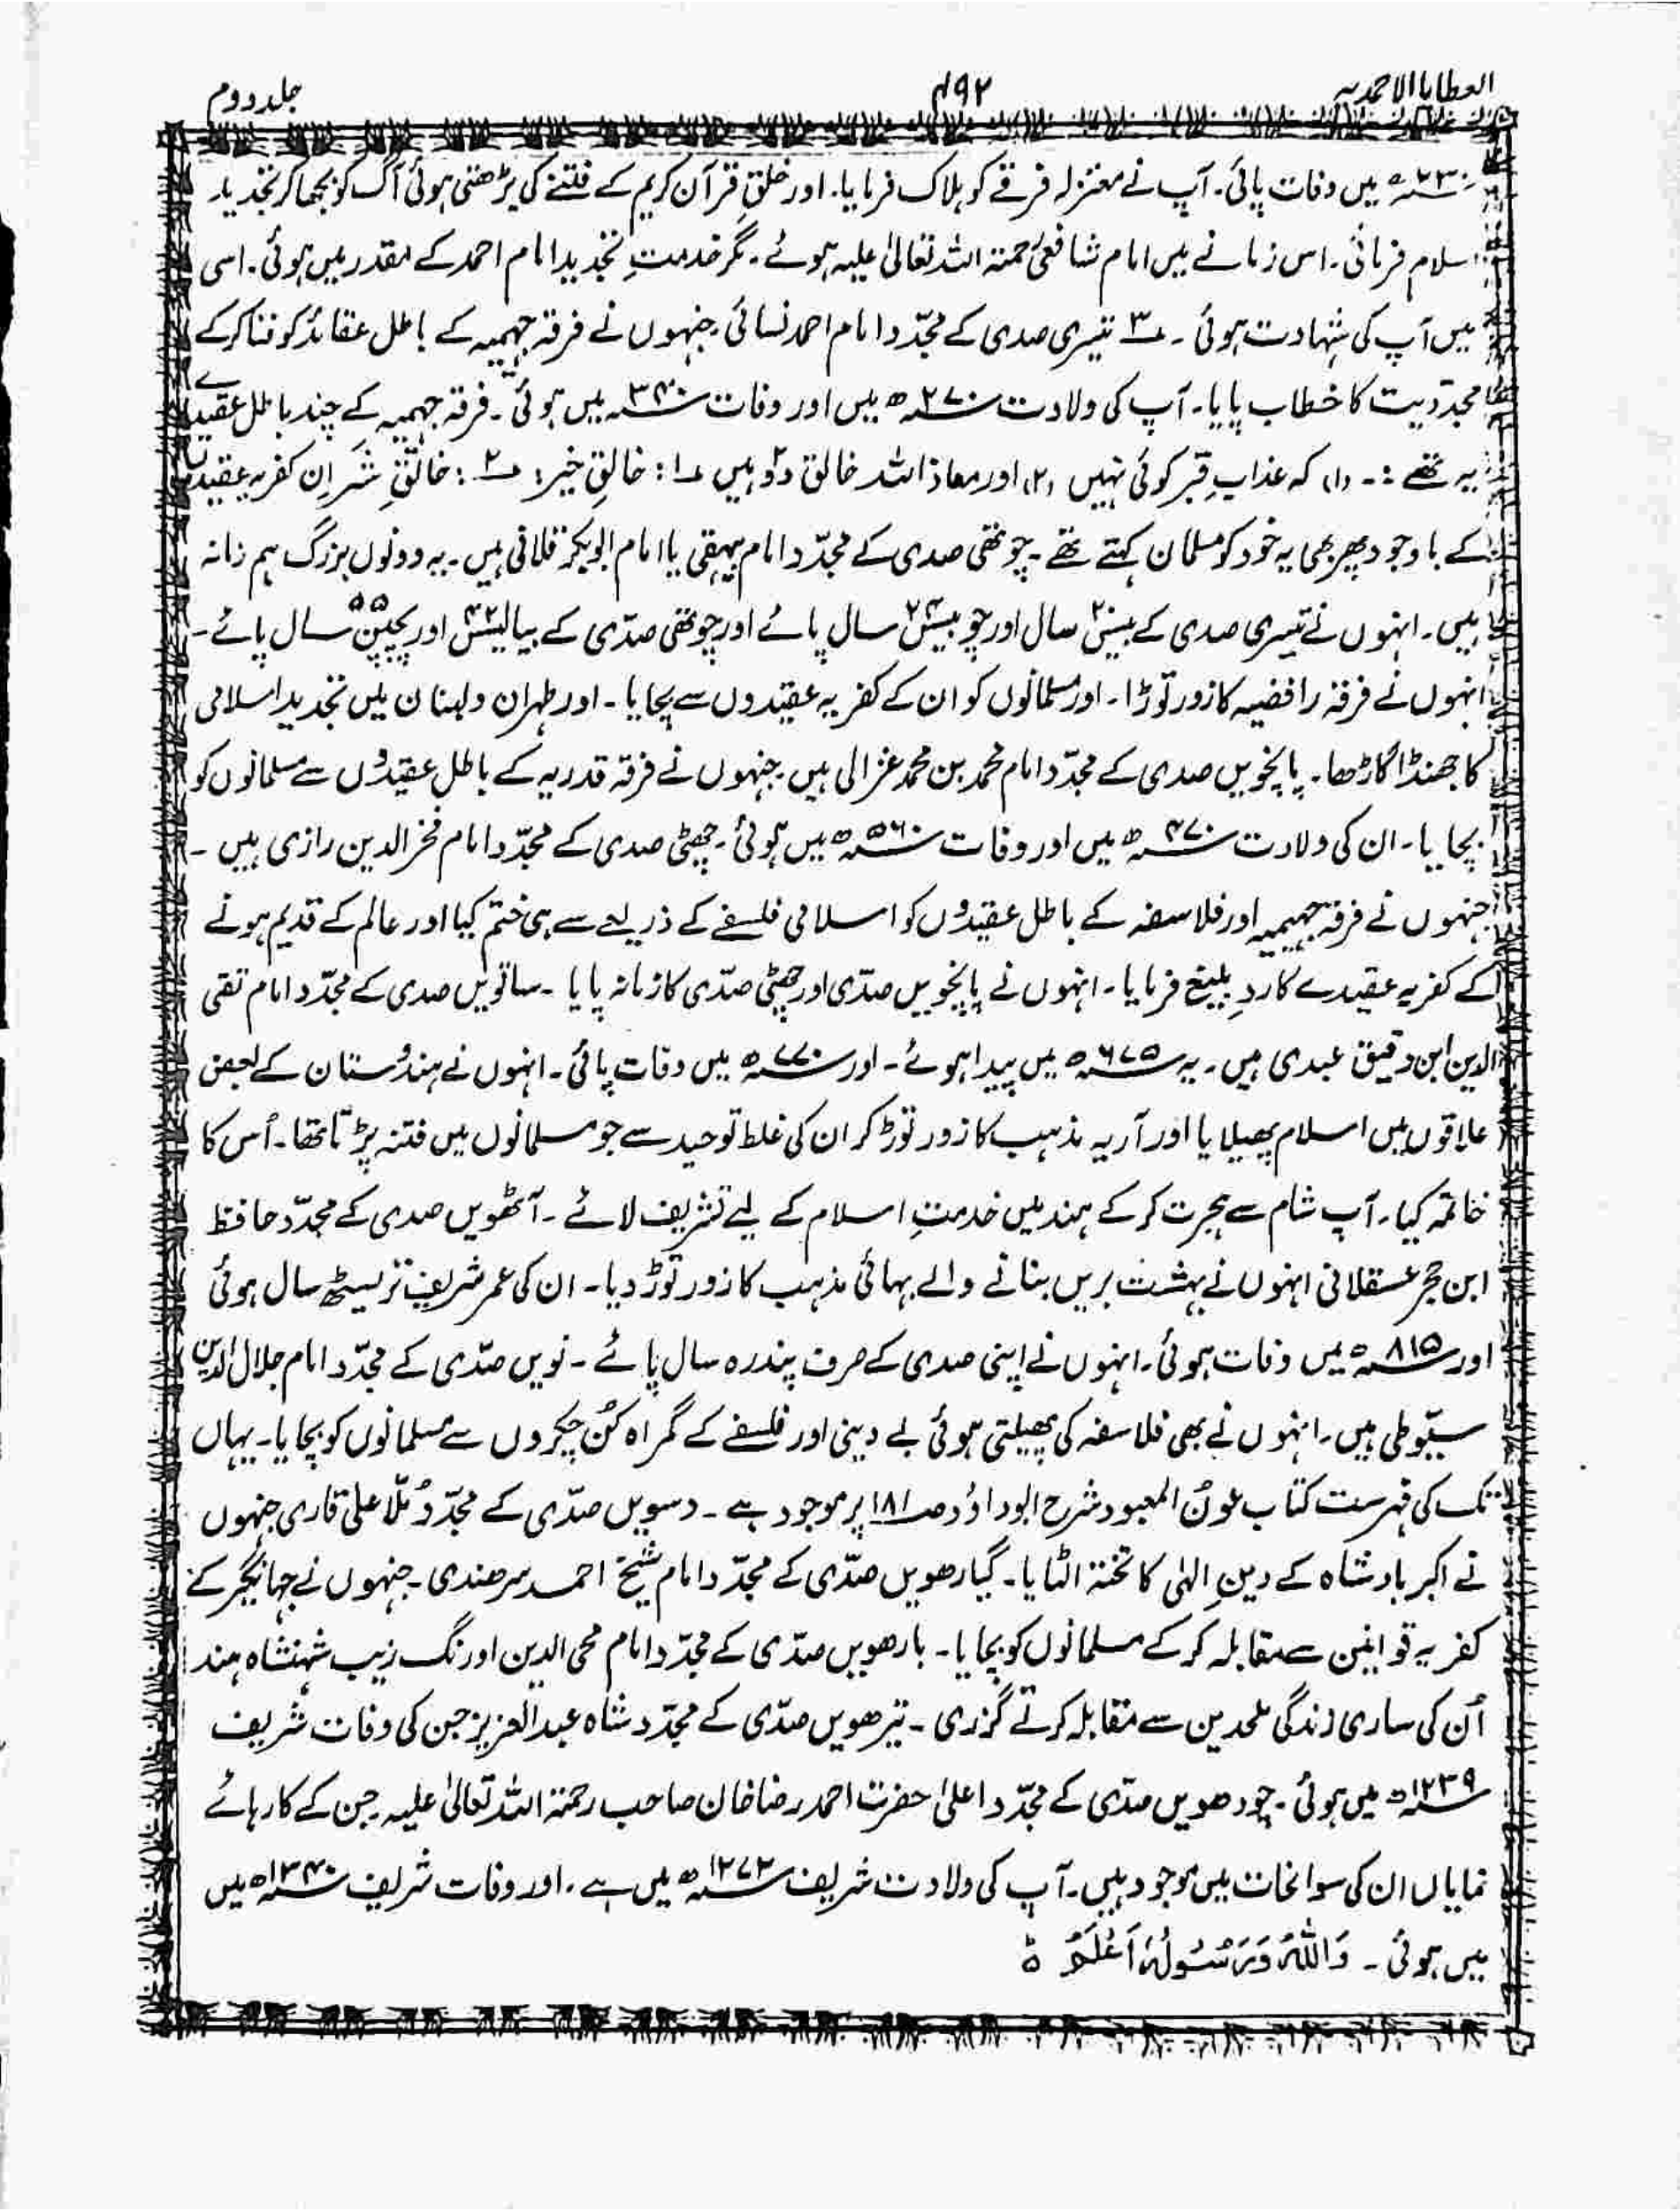 العطایا الاحمدیہ ۴۹۲ جلد دوم
۲۳۰ھ میں وفات پائی۔ آپ نے معتزلہ فرقے کو ہلاک فرمایا۔ اور خلقِ قرآن کریم کے فتنے کی بڑھتی ہوئی آگ کو بجھا کر تجدید
اسلام فرمائی۔ اس زمانے میں امام شافعی رحمتہ اللہ تعالیٰ علیہ ہوئے۔ مگر خدمتِ تجدید امام احمد کے مقدر میں ہوئی۔ اسی
میں آپ کی شہادت ہوئی۔ ۳؂ تیسری صدی کے مجدّد امام احمد نسائی، جنہوں نے فرقۂ جہمیہ کے باطل عقائد کو فنا کر کے
مجددیت کا خطاب پایا۔ آپ کی ولادت ۲۷۰ھ میں اور وفات ۳۴۰ھ میں ہوئی۔ فرقۂ جہمیہ کے چند باطل عقیدے
یہ تھے :۔ (۱) کہ عذابِ قبر کوئی نہیں (۲) اور معاذ اللہ خالق دو۲ ہیں ۱؂: خالقِ خیر: ۲؂: خالقِ شر اِن کفریہ عقیدوں
کے باوجود پھر بھی یہ خود کو مسلمان کہتے تھے۔ چوتھی صدی کے مجدّد امام بیہقی یا امام ابوبکر قلانی ہیں۔ یہ دونوں بزرگ ہم زمانہ
ہیں۔ انہوں نے تیسری صدی کے بیس۲۰ سال اور چوبیس۲۴ سال پائے اور چوتھی صدی کے بیالیس۴۲ اور پچپن۵۵ سال پائے۔
انہوں نے فرقۂ رافضیہ کا زور توڑا۔ اور مسلمانوں کو ان کے کفریہ عقیدوں سے بچایا۔ اور طہران و لبنان میں تجدید اسلامی
کا جھنڈا گاڑھا۔ پانچویں صدی کے مجدّد امام محمد بن محمد غزالی ہیں۔ جنہوں نے فرقۂ قدریہ کے باطل عقیدوں سے مسلمانوں کو
بچایا۔ ان کی ولادت ۴۷۰ھ میں اور وفات ۵۶۰ھ میں ہوئی۔ چھٹی صدی کے مجدّد امام فخر الدین رازی ہیں۔
جنہوں نے فرقۂ جہیمیہ اور فلاسفہ کے باطل عقیدوں کو اسلامی فلسفے کے ذریعے سے ہی ختم کیا اور عالم کے قدیم ہونے
کے کفریہ عقیدے کا ردِ بلیغ فرمایا۔ انہوں نے پانچویں صدی اور چھٹی صدی کا زمانہ پایا۔ ساتویں صدی کے مجدّد امام تقی
الدین ابن دقیق عبدی ہیں۔ یہ ۶۷۵ھ میں پیدا ہوئے۔ اور ۷۷۰ھ میں وفات پائی۔ انہوں نے ہندوستان کے بعض
علاقوں میں اسلام پھیلایا اور آریہ مذہب کا زور توڑ کر ان کی غلط توحید سے جو مسلمانوں میں فتنہ پڑتا تھا۔ اُس کا
خاتمہ کیا۔ آپ شام سے ہجرت کر کے ہند میں خدمتِ اسلام کے لیے تشریف لائے۔ آٹھویں صدی کے مجدّد حافظ
ابن حجر عسقلانی انہوں نے بہشت بریں بنانے والے بہائی مذہب کا زور توڑ دیا۔ ان کی عمر شریف تریسٹھ سال ہوئی
اور ۸۱۵ھ میں وفات ہوئی۔ انہوں نے اپنی صدی کے صرف پندرہ سال پائے۔ نویں صدی کے مجدّد امام جلال الدین
سیّوطی ہیں۔ انہوں نے بھی فلاسفہ کی پھیلتی ہوئی بے دینی اور فلسفے کے گمراہ کُن چکروں سے مسلمانوں کو بچایا۔ یہاں
تک کی فہرست کتاب عونُ المعبود شرح ابوداؤد صـ۱۸۱ پر موجود ہے۔ دسویں صدی کے مجدّد مُلّا علی قاری جنہوں
نے اکبر بادشاہ کے دینِ الہٰی کا تختہ الٹایا۔ گیارھویں صدی کے مجدّد امام شیخ احمد سرھندی۔ جنہوں نے جہانگیر کے
کفریہ قوانین سے مقابلہ کر کے مسلمانوں کو بچایا۔ بارھویں صدی کے مجدّد امام محی الدین اورنگ زیب شہنشاہ ہند
اُن کی ساری زندگی ملحدین سے مقابلہ کرتے گزری۔ تیرھویں صدی کے مجدّد شاہ عبد العزیز جن کی وفات شریف
۱۲۳۹ھ میں ہوئی۔ چودھویں صدی کے مجدّد اعلیٰ حضرت احمد رضا خان صاحب رحمتہ اللہ تعالیٰ علیہ جن کے کارہائے
نمایاں ان کی سوانحات میں موجود ہیں۔ آپ کی ولادت شریف ۱۲۷۲ھ میں ہے۔ اور وفات شریف ۱۳۴۰ھ میں
میں ہوئی۔ وَاللّٰہُ وَرَسُولُہٗ اَعْلَمُ ؕ